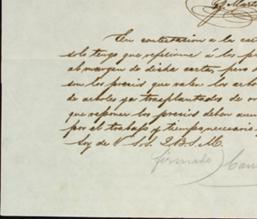 G. Mart
En contestacion a la car
solo tengo que repetirme á los pre
al margen de dicha carta, pero
son los precios que valen los arbo
de arboles ya transplantados de
que reponer los precios deben aum
por el trabajo y tiempo necesario
Soy de V. S. S. Q. B. S. M.
firmado